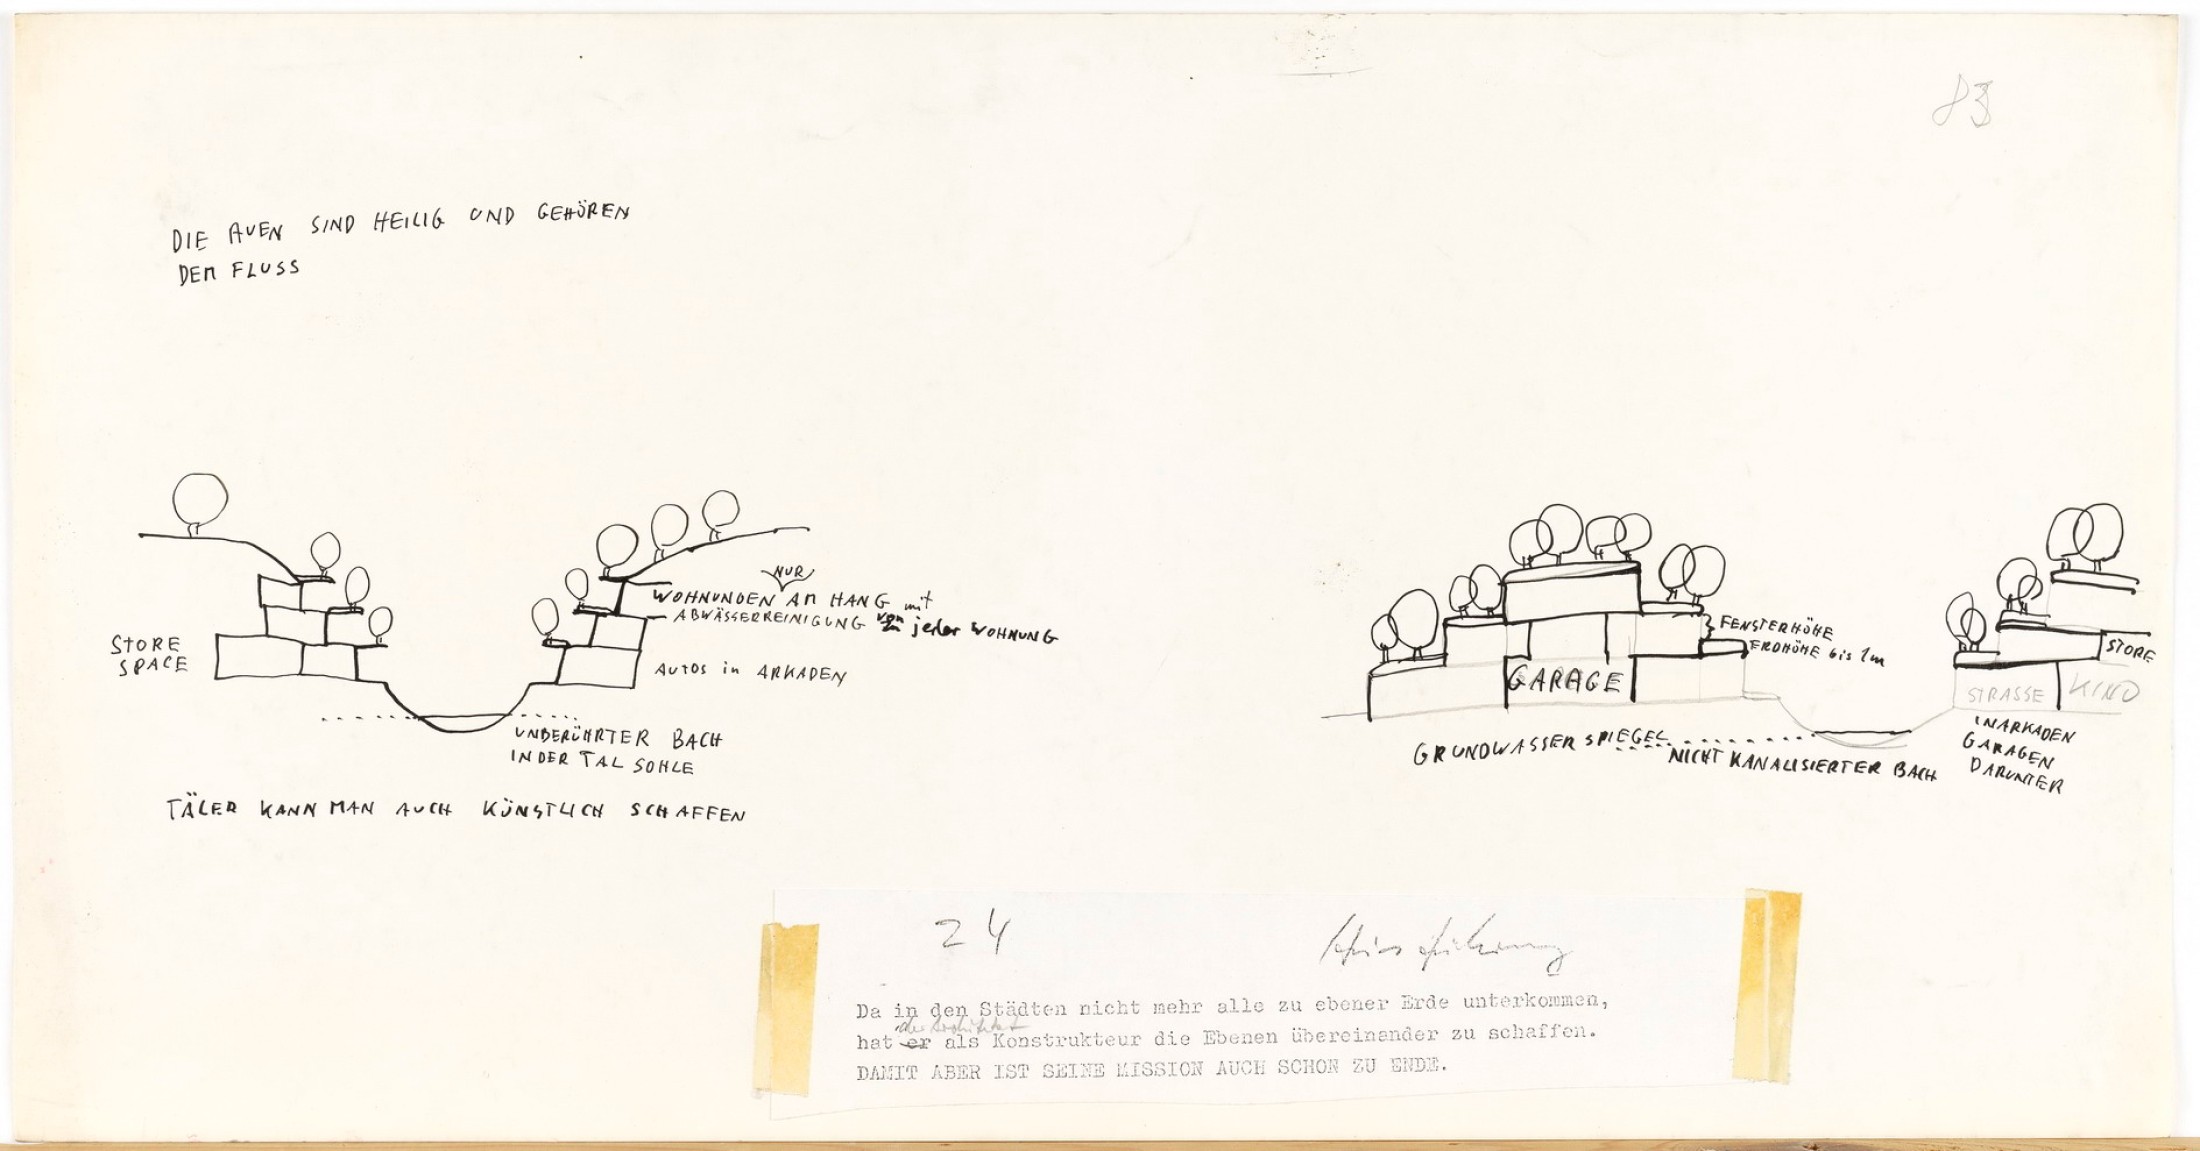 83
DIE AUEN SIND HEILIG UND GEHÖREN
DEM FLUSS
STORE
SPACE
NUR
WOHNUNDEN AM HANG mit
ABWÄSSERREINIGUNG von jeder WOHNUNG
AUTOS in ARKADEN
UNBERÜHRTER BACH
IN DER TAL SOHLE
TÄLER KANN MAN AUCH KÜNSTLICH SCHAFFEN
GARAGE
FENSTERHÖHE
ERDHÖHE bis 1m
GRUNDWASSERSPIEGEL
NICHT KANALISIERTER BACH
STORE
STRASSE
KINO
IN ARKADEN
GARAGEN
DARUNTER
24
Da in den Städten nicht mehr alle zu ebener Erde unterkommen,
der Architekt
hat er als Konstrukteur die Ebenen übereinander zu schaffen.
DAMIT ABER IST SEINE MISSION AUCH SCHON ZU ENDE.